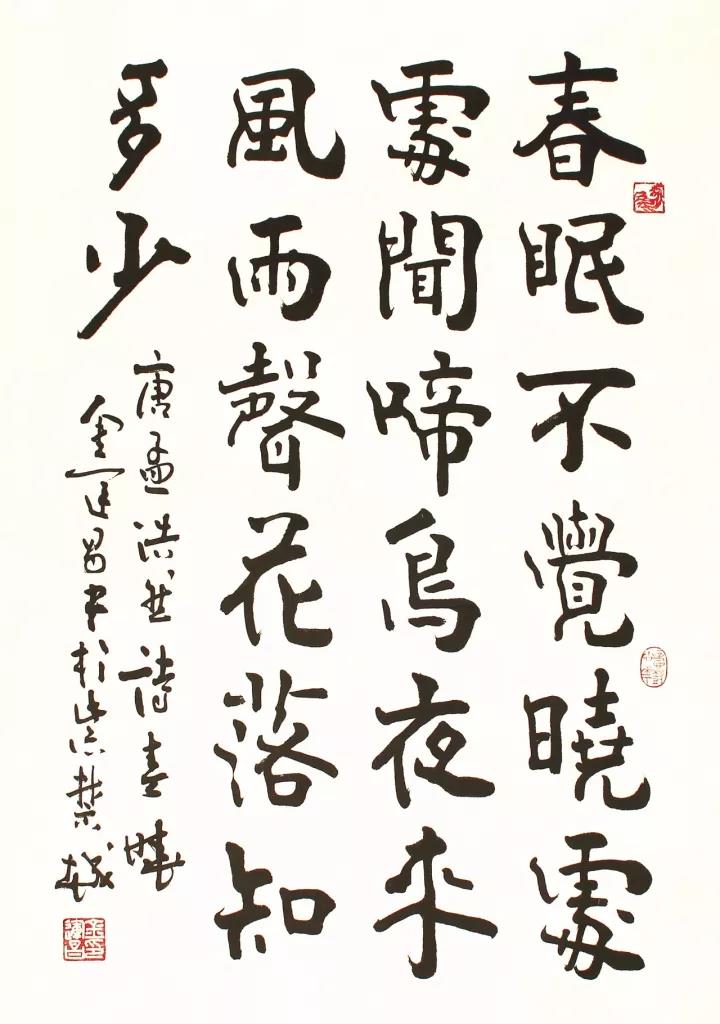 春眠不覺曉處
處聞啼鳥夜來
風雨聲花落知
多少
唐孟浩然詩春曉
金運昌書於紫禁城